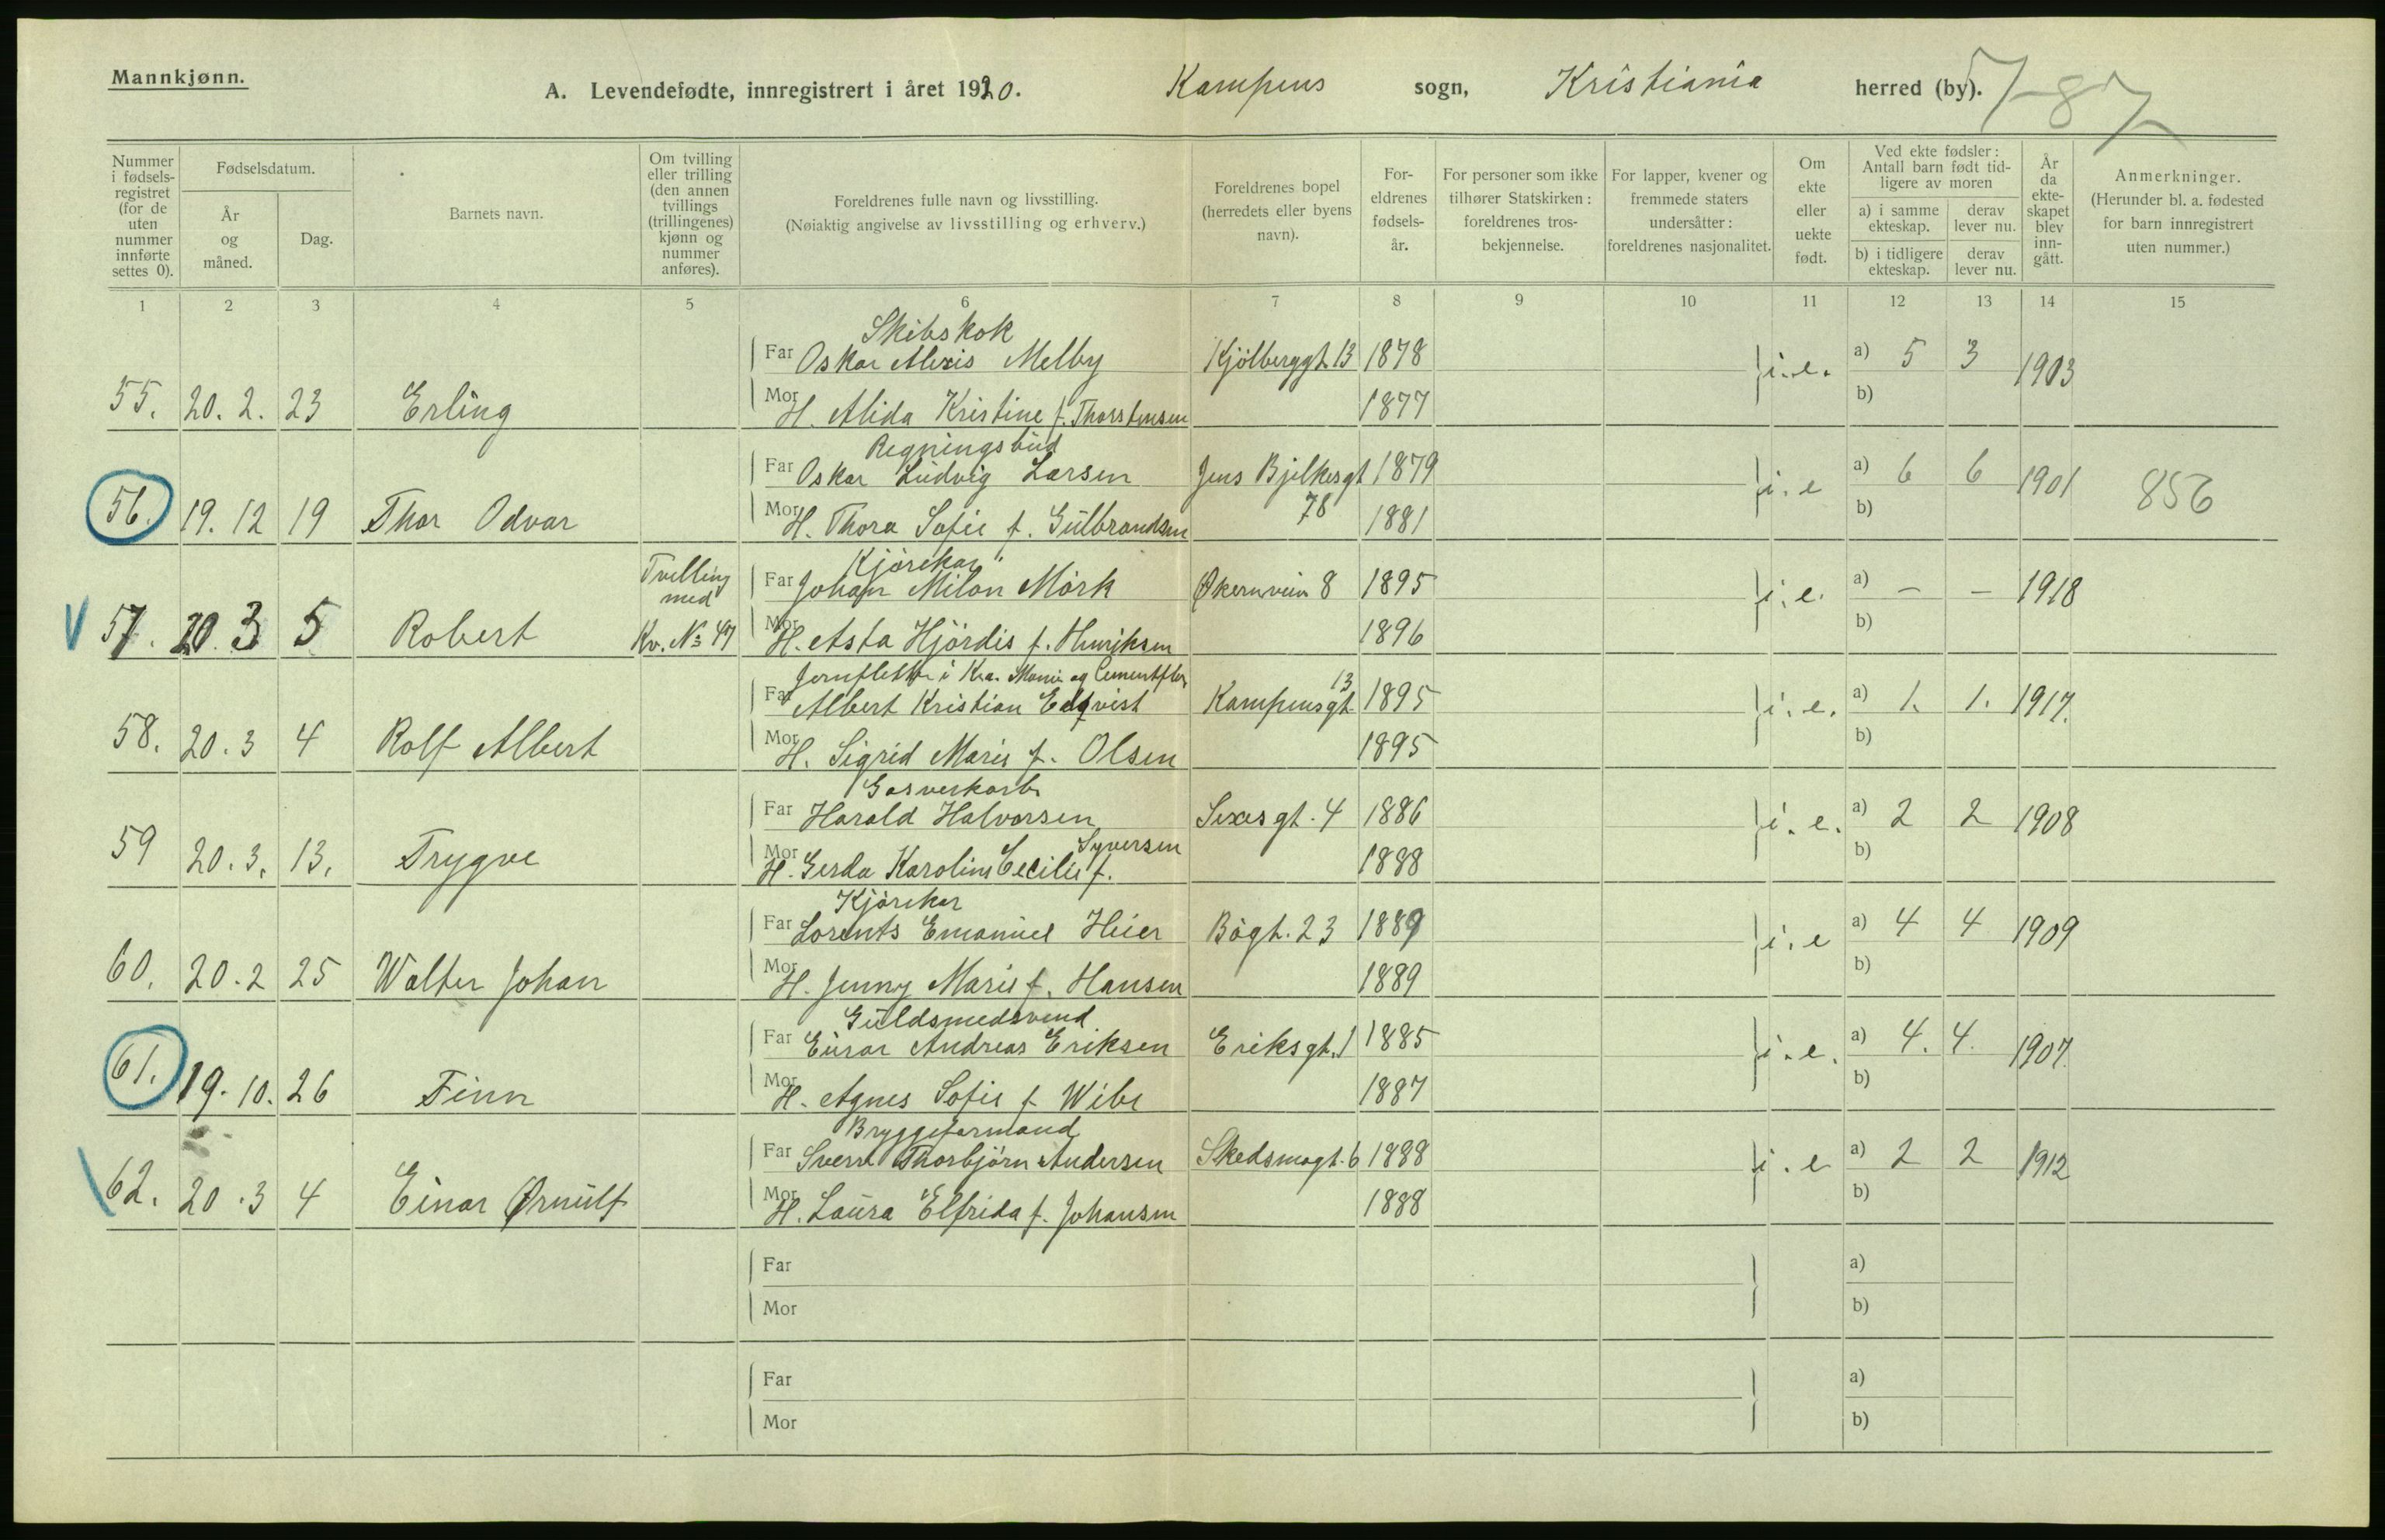 Mannkjønn.
A. Levendefødte, innregistrert i året 1920. Kampens sogn, Kristiania herred (by). 7-87
Nummer i fødselsregistret (for de uten nummer innførte settes 0).
Fødselsdatum.
År og måned.
Dag.
Barnets navn.
Om tvilling eller trilling (den annen tvillings (trillingenes) kjønn og nummer anføres).
Foreldrenes fulle navn og livsstilling.
(Nøiaktig angivelse av livsstilling og erhverv.)
Foreldrenes bopel (herredets eller byens navn).
Foreldrenes fødselsår.
For personer som ikke tilhører Statskirken: foreldrenes trosbekjennelse.
For lapper, kvener og fremmede staters undersåtter: foreldrenes nasjonalitet.
Om ekte eller uekte født.
Ved ekte fødsler: Antall barn født tidligere av moren
a) i samme ekteskap. derav lever nu.
b) i tidligere ekteskap. derav lever nu.
År da ekteskapet blev inngått.
Anmerkninger.
(Herunder bl. a. fødested for barn innregistrert uten nummer.)
1 2 3 4 5 6 7 8 9 10 11 12 13 14 15
Skibskok
Far Oskar Alexis Melby Kjölberggt. 13 1878 i.e. a) 5 3 1903
55. 20. 2. 23 Erling Mor H. Alida Kristine f. Thorstensen 1877 b)
Regningsbud
Far Oskar Ludvig Larsen Jens Bjelkesgt 78 1879 i.e a) 6 6 1901 856
56. 19. 12 19 Thor Odvar Mor H. Thora Sofie f. Gulbrandsen 1881 b)
Kjörekar
Tvilling med Far Johan Milon Mörk Økernveien 8 1895 i.e. a) - - 1918
57. 20. 3 5 Robert Kv. No 47 Mor H. Asta Hjördis f. Henriksen 1896 b)
i Kra. og
Far Albert Kristian Kampensgt 13 1895 i.e. a) 1. 1. 1917.
58. 20. 3 4 Rolf Albert Mor H. Sigrid Marie f. Olsen 1895 b)
Gasverkarb.
Far Harald Halvorsen Sexesgt. 4 1886 i.e. a) 2 2 1908
59 20. 3. 13. Trygve Mor H. Gerda Karoline Cecilie f. Syversen 1888 b)
Kjörekar
Far Lorents Emanuel Heier Bögt. 23 1889 i.e a) 4 4 1909
60. 20. 2 25 Walter Johan Mor H. Jenny Marie f. Hansen 1889 b)
Guldsmedsvend
Far Einar Andreas Eriksen Eriksgt. 1 1885 i.e. a) 4. 4. 1907.
61. 19. 10. 26 Finn Mor H. Agnes Sofie f. Wibe 1887 b)
Bryggeformand
Far Sverre Thorbjörn Andersen Skedsmogt. 6 1888 i.e a) 2 2 1912
62. 20. 3 4 Einar Ørnulf Mor H. Laura Elfrida f. Johansen 1888 b)
Far a)
Mor b)
Far a)
Mor b)